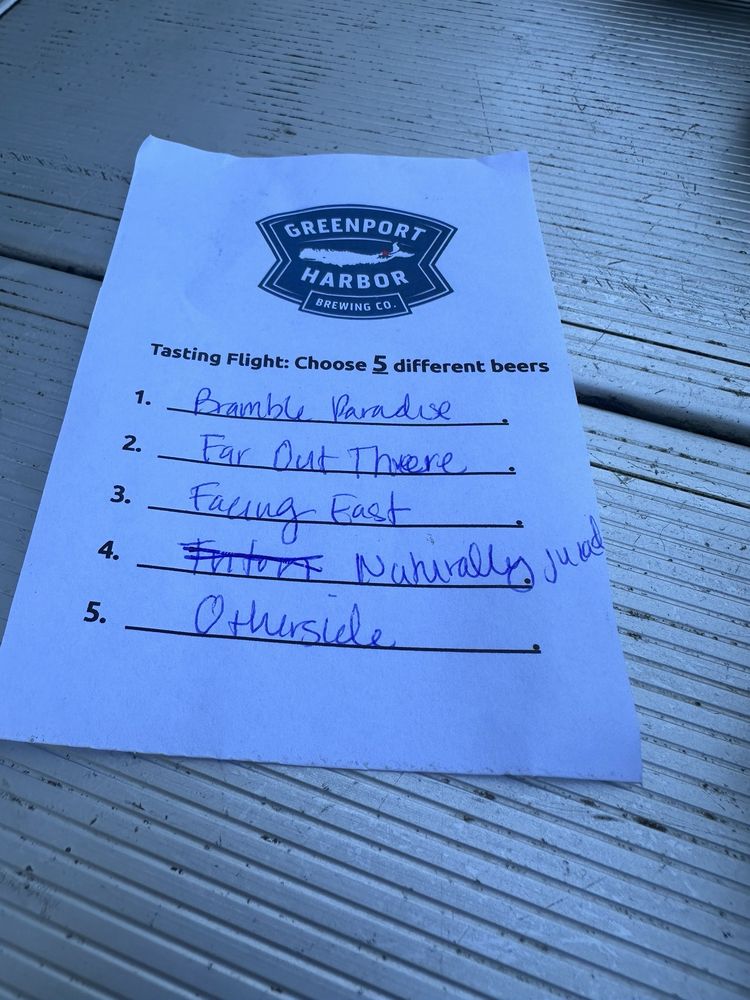 GREENPORT
HARBOR
BREWING CO.
Tasting Flight: Choose 5 different beers
1. Bramble Paradise
2. Far Out There
3. Facing East
4. Naturally
5. Otherside